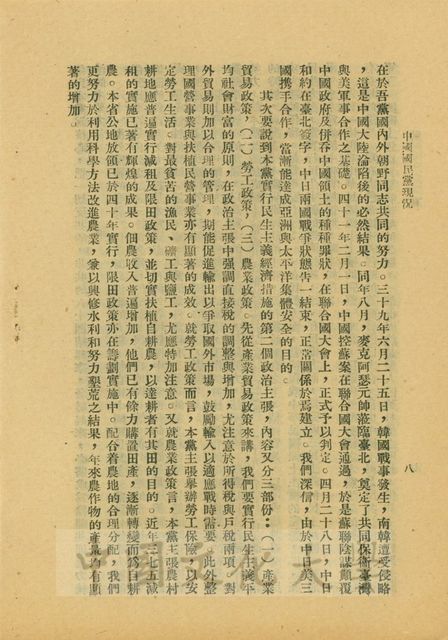 中國國民黨現況
八
在於吾黨國內外朝野同志共同的努力。三十九年六月二十五日，韓國戰事發生，南韓遭受侵略
，這是中國大陸淪陷後的必然結果。同年八月，麥克阿瑟元帥蒞臨臺北，奠定了共同保衛臺灣
與美軍事合作之基礎。四十一年二月一日，中國控蘇案在聯合國大會通過，於是蘇聯陰謀顛覆
中國政府及併吞中國領土的種種罪狀，在聯合國大會上，正式予以判定。四月二十八日，中日
和約在臺北簽字，中日兩國戰爭狀態告一結束，正常關係於焉建立。我們深信，由於中日美三
國携手合作，當漸能達成亞洲與太平洋集體安全的目的。
其次要說到本黨實行民生主義經濟措施的第二個政治主張，內容又分三部份：（一）產業
貿易政策，（二）勞工政策，（三）農業政策。先從產業貿易政策來講，我們要實行民生主義平
均社會財富的原則，在政治主張中强調直接稅的調整與增加，尤注意於所得稅與戶稅兩項。對
外貿易則加以合理的管理，期能促進輸出以爭取國外市場，鼓勵輸入以適應戰時需要。此外整
理國營事業與扶植民營事業亦有顯著的成效。就勞工政策而言，本黨主張舉辦勞工保險，以安
定勞工生活。對最貧苦的漁民、礦工與鹽工，尤應特加注意。又就農業政策言，本黨主張農村
耕地應普遍實行減租及限田政策，並切實扶植自耕農，以達耕者有其田的目的。近年三七五減
租的實施已著有輝煌的成果。佃農收入普遍增加，他們已有餘力購置田產，逐漸轉變而爲自耕
農。本省公地放領已於四十年實行，限田政策亦在籌劃實施中。配合着農地的合理分配，我們
更努力於利用科學方法改進農業，兼以興修水利和努力墾荒之結果，年來農作物的產量均有顯
著的增加。